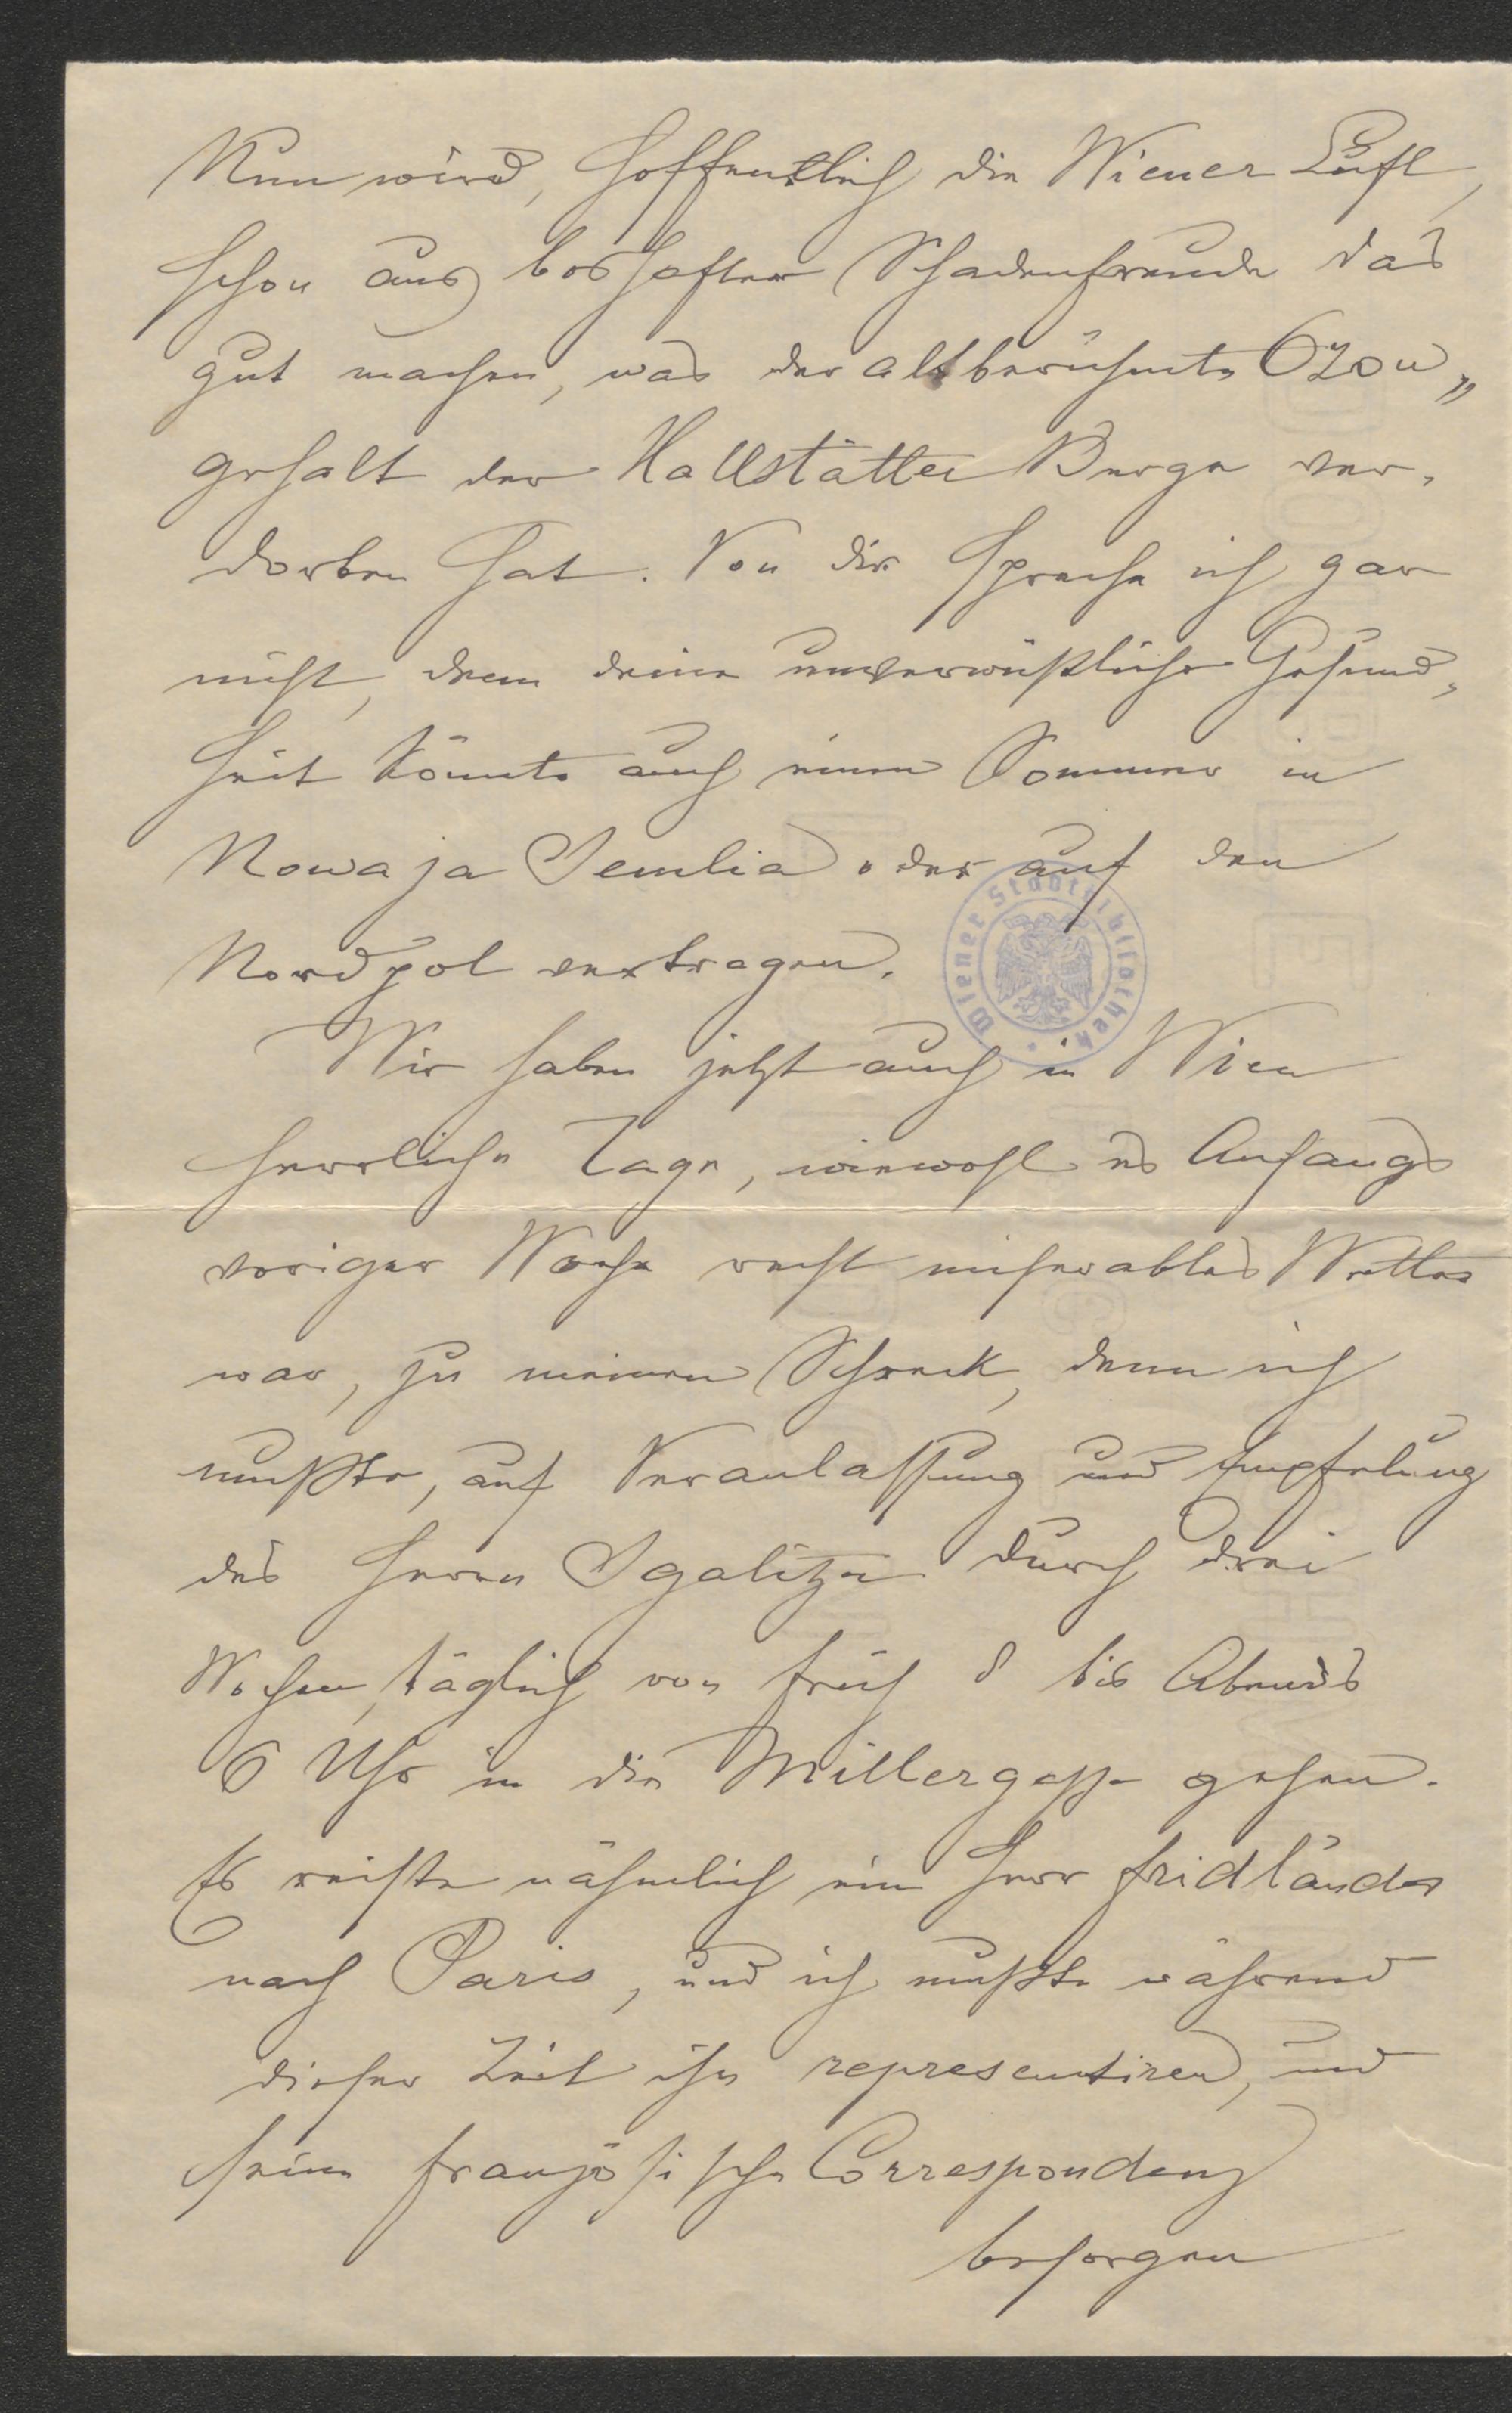 Nun wird, hoffentlich die Wiener Luft,
schon aus boshafter Schadenfreude das
gut machen, was der altberühmte Ozon„
gehalt der Hallstätter Berge ver„
dorben hat. Von dir spreche ich gar
nicht, denn deine unverwüstliche Gesund„
heit könnte auch einen Sommer in
Nowaja Semlia oder auf den
Nordpol vertragen.
Wiener Stadtbibliothek
Wir haben jetzt auch in Wien
herrliche Tage, wiewohl es Anfangs
voriger Woche recht miserables Wetter
war, zu meinem Schreck, denn ich
mußte, auf Veranlassung und Empfelung
des Herrn Igalitzi durch drei
Wochen, täglich von früh 8 bis Abends
6 Uhr in die Millergasse gehen.
Es reiste nähmlich ein Herr Fridländer
nach Paris, und ich mußte während
dieser Zeit ihn representiren, und
seine französische Correspondenz
besorgen